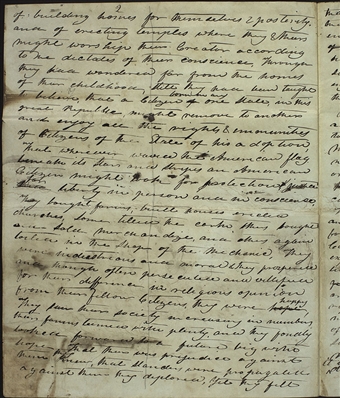 2
of building homes for themselves & posterity,
and of erecting temples where they & theirs
might worship their Creator according
to the dictates of their conscience. Though
they had wandered far from the homes
of their childhood, still they had been taught
to believe, that a Citizen of one State, in this
great Republic might remove to another
and enjoy all the rights & immunities
of Citizens of the State of his adoption
That wherever waved the American flag
beneath its Stars and Stripes an American
Citizen might look for protection
liberty in person and in conscience
They bought farms, built houses erected
churches, some tilled the earth others bought
and sold merchandize, and others again
toiled in the Shop of the mechanic. They
were industrious and moral they prospered
and though often persecuted and vilified
for their difference in religious opinions
from their fellow Citizens they were happy
They saw their society increasing in numbers
their farms teemed with plenty, and they fondly
looked forward to a future big with
hope. That there was prejudice against
them they knew, that slanders were propagated
against them they deplored, yet they felt